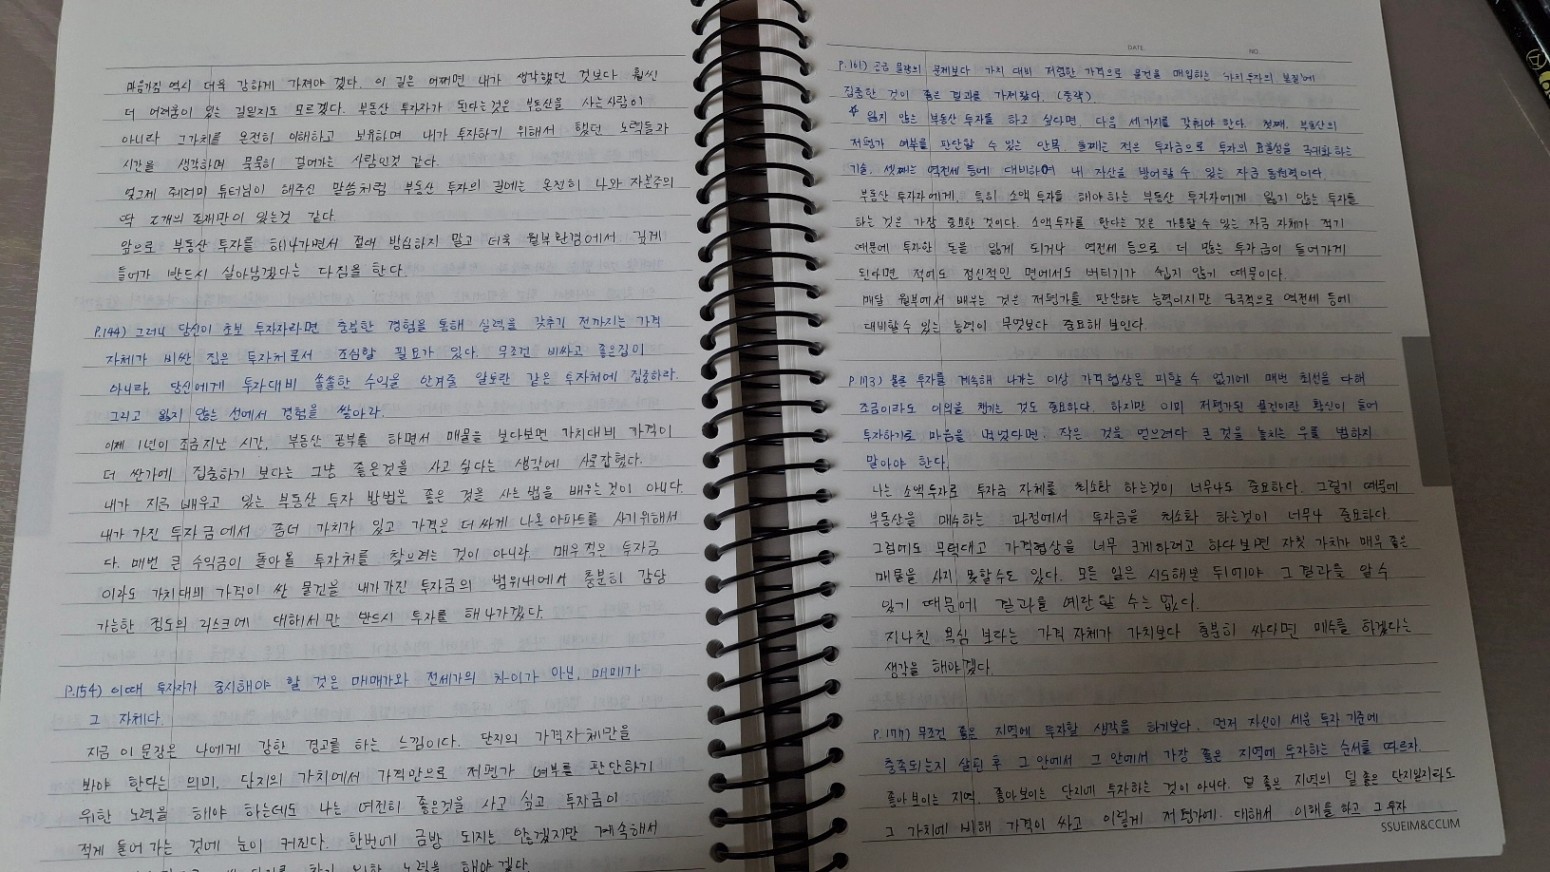 마음가짐 역시 더욱 강하게 가져야 겠다. 이 길은 어쩌면 내가 생각했던 것보다 훨씬
더 어려움이 있는 길일지도 모르겠다. 부동산 투자자가 된다는것은 부동산을 사는사람이
아니라 그가치를 온전히 이해하고 보유하며 내가 투자하기 위해서 했던 노력들과
시간을 생각하며 묵묵히 걸어가는 사람인것 같다.
엊그제 쥬러미 튜터님이 해주신 말씀처럼 부동산 투자의 길에는 온전히 나와 자본주의
딱 2개의 존재만이 있는것 같다
앞으로 부동산 투자를 해나가면서 절대 방심하지 말고 더욱 월부환경에서 깊게
들어가 반드시 살아남겠다는 다짐을 한다.
P.144) 그러나 당신이 초보 투자자라면 충분한 경험을 통해 실력을 갖추기 전까지는 가격
자체가 비싼 집은 투자처로서 조심할 필요가 있다. 무조건 비싸고 좋은집이
아니라, 당신에게 투자대비 쏠쏠한 수익을 안겨줄 알토란 같은 투자처에 집중하라.
그리고 잃지 않는 선에서 경험을 쌓아라.
이제 1년이 조금지난 시간, 부동산 공부를 하면서 매물을 보다보면 가치대비 가격이
더 싼가에 집중하기 보다는 그냥 좋은것을 사고 싶다는 생각에 사로잡혔다.
내가 지금 배우고 있는 부동산 투자 방법은 좋은 것을 사는법을 배우는것이 아니다.
내가 가진 투자금에서 좀더 가치가 있고 가격은 더싸게 나온 아파트를 사기위해서
다. 매번 큰 수익금이 돌아올 투자처를 찾으려는 것이 아니라 매우적은 투자금
이라도 가치대비 가격이 싼 물건을 내가가진 투자금의 범위내에서 충분히 감당
가능한 정도의 리스크에 대해서만 반드시 투자를 해나가겠다.
P.154) 이때 투자자가 중시해야 할 것은 매매가와 전세가의 차이가 아닌, 매매가
그 자체다.
지금 이 문장은 나에게 강한 경고를 하는 느낌이다. 단지의 가격자체만을
봐야 한다는 의미, 단지의 가치에서 가격만으로 저평가 여부를 판단하기
위한 노력을 해야 하는데도 나는 여전히 좋은것을 사고 싶고 투자금이
적게 들어가는 것에 눈이 커진다. 한번에 금방 되지는 않겠지만 계속해서
노력을 해야겠다.
DATE. NO.
P.161) 공급 물량의 문제보다 가치 대비 저렴한 가격으로 물건을 매입하는 '가치투자의 본질'에
집중한 것이 좋은 결과를 가져왔다. (중략)
☆ 잃지 않는 부동산 투자를 하고 싶다면, 다음 세가지를 갖춰야 한다. 첫째, 부동산의
저평가 여부를 판단할 수 있는 안목. 둘째는 적은 투자금으로 투자의 효율성을 극대화하는
기술, 셋째는 역전세 등에 대비하여 내 자산을 방어할 수 있는 자금 동원력이다.
부동산 투자자에게, 특히 소액 투자를 해야하는 부동산 투자자에게 잃지 않는 투자를
하는 것은 가장 중요한 것이다. 소액투자를 한다는 것은 가용할수 있는 자금 자체가 적기
때문에 투자한 돈을 잃게 되거나 역전세 등으로 더 많은 투자금이 들어가게
된다면 적어도 정신적인 면에서도 버티기가 쉽지 않기 때문이다.
매달 월부에서 배우는 것은 저평가를 판단하는 능력이지만 궁극적으로 역전세 등에
대비할수 있는 능력이 무엇보다 중요해 보인다
P.173) 물론 투자를 계속해 나가는 이상 가격협상은 피할 수 없기에 매번 최선을 다해
조금이라도 이익을 챙기는 것도 중요하다. 하지만 이미 저평가된 물건이란 확신이 들어
투자하기로 마음을 먹었다면, 작은 것을 얻으려다 큰 것을 놓치는 우를 범하지
말아야 한다.
나는 소액투자로 투자금 자체를 최소화 하는것이 너무나도 중요하다. 그렇기 때문에
부동산을 매수하는 과정에서 투자금을 최소화 하는것이 너무나 중요하다
그럼에도 무턱대고 가격협상을 너무 크게하려고 하다보면 자칫 가치가 매우좋은
매물을 사지 못할수도 있다. 모든 일은 시도해본 뒤에야 그결과를 알 수
있기 때문에 결과를 예단할 수는 없다.
지나친 욕심 보다는 가격자체가 가치보다 충분히 싸다면 매수를 하겠다는
생각을 해야겠다.
P.177) 무조건 좋은 지역에 투자할 생각을 하기보다, 먼저 자신이 세운 투자기준에
충족되는지 살핀 후 그 안에서 그 안에서 가장 좋은 지역에 투자하는 순서를 따르자.
좋아보이는 지역, 좋아보이는 단지에 투자하는 것이 아니다. 덜 좋은 지역의 덜좋은 단지일지라도
그 가치에 비해 가격이 싸고 이렇게 저평가에 대해서 이해를 하고 그 투자
SSUEIM&CCLIM